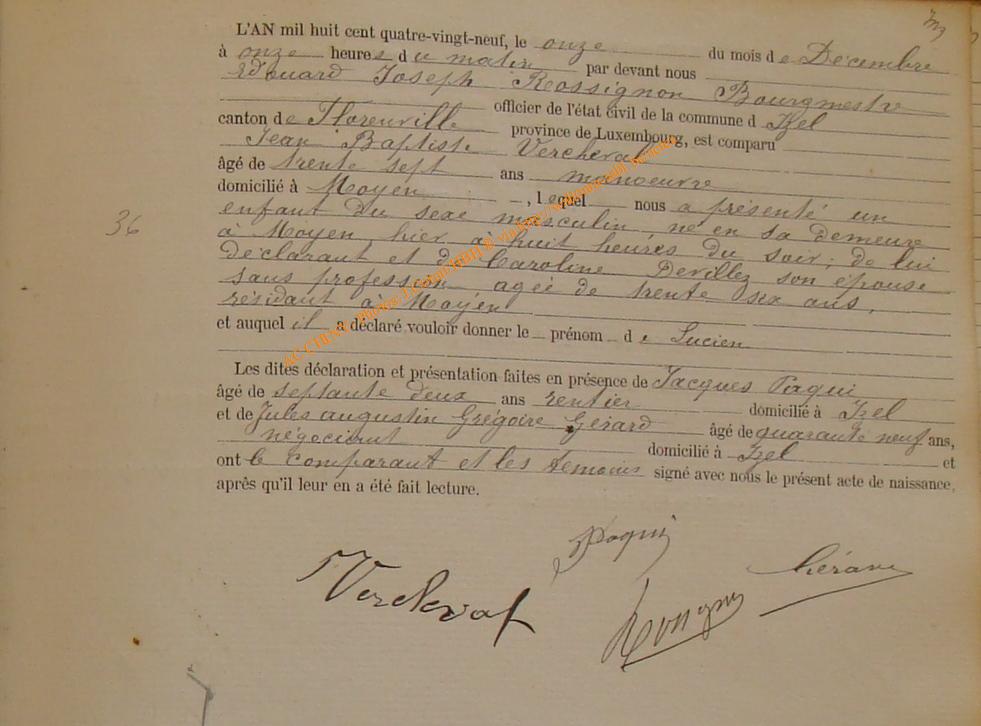 L'AN mil huit cent quatre-vingt-neuf, le onze du mois de Décembre
à onze heures du matin par devant nous
Edouard Joseph Rossignon Bourgmestre
officier de l'état civil de la commune d Izel
canton de Florenville province de Luxembourg, est comparu
Jean Baptiste Ververval
âgé de trente sept ans manoeuvre
domicilié à Moyen , lequel nous a présenté un
36
enfant du sexe masculin, né en sa demeure
à Moyen, hier à huit heures du soir; de lui
déclarant et de Caroline Devillez son épouse
sans profession agée de trente six ans,
résidant à Moyen
et auquel il a déclaré vouloir donner le prénom de Lucien
Les dites déclaration et présentation faites en présence de Jacques Paqui
âgé de septante deux ans rentier domicilié à Izel
et de Jules augustin Grégoire Gérard âgé de quarante neuf ans,
négociant domicilié à Izel et
ont le comparant et les temoins signé avec nous le présent acte de naissance,
après qu'il leur en a été fait lecture.
Paqui
Gérard